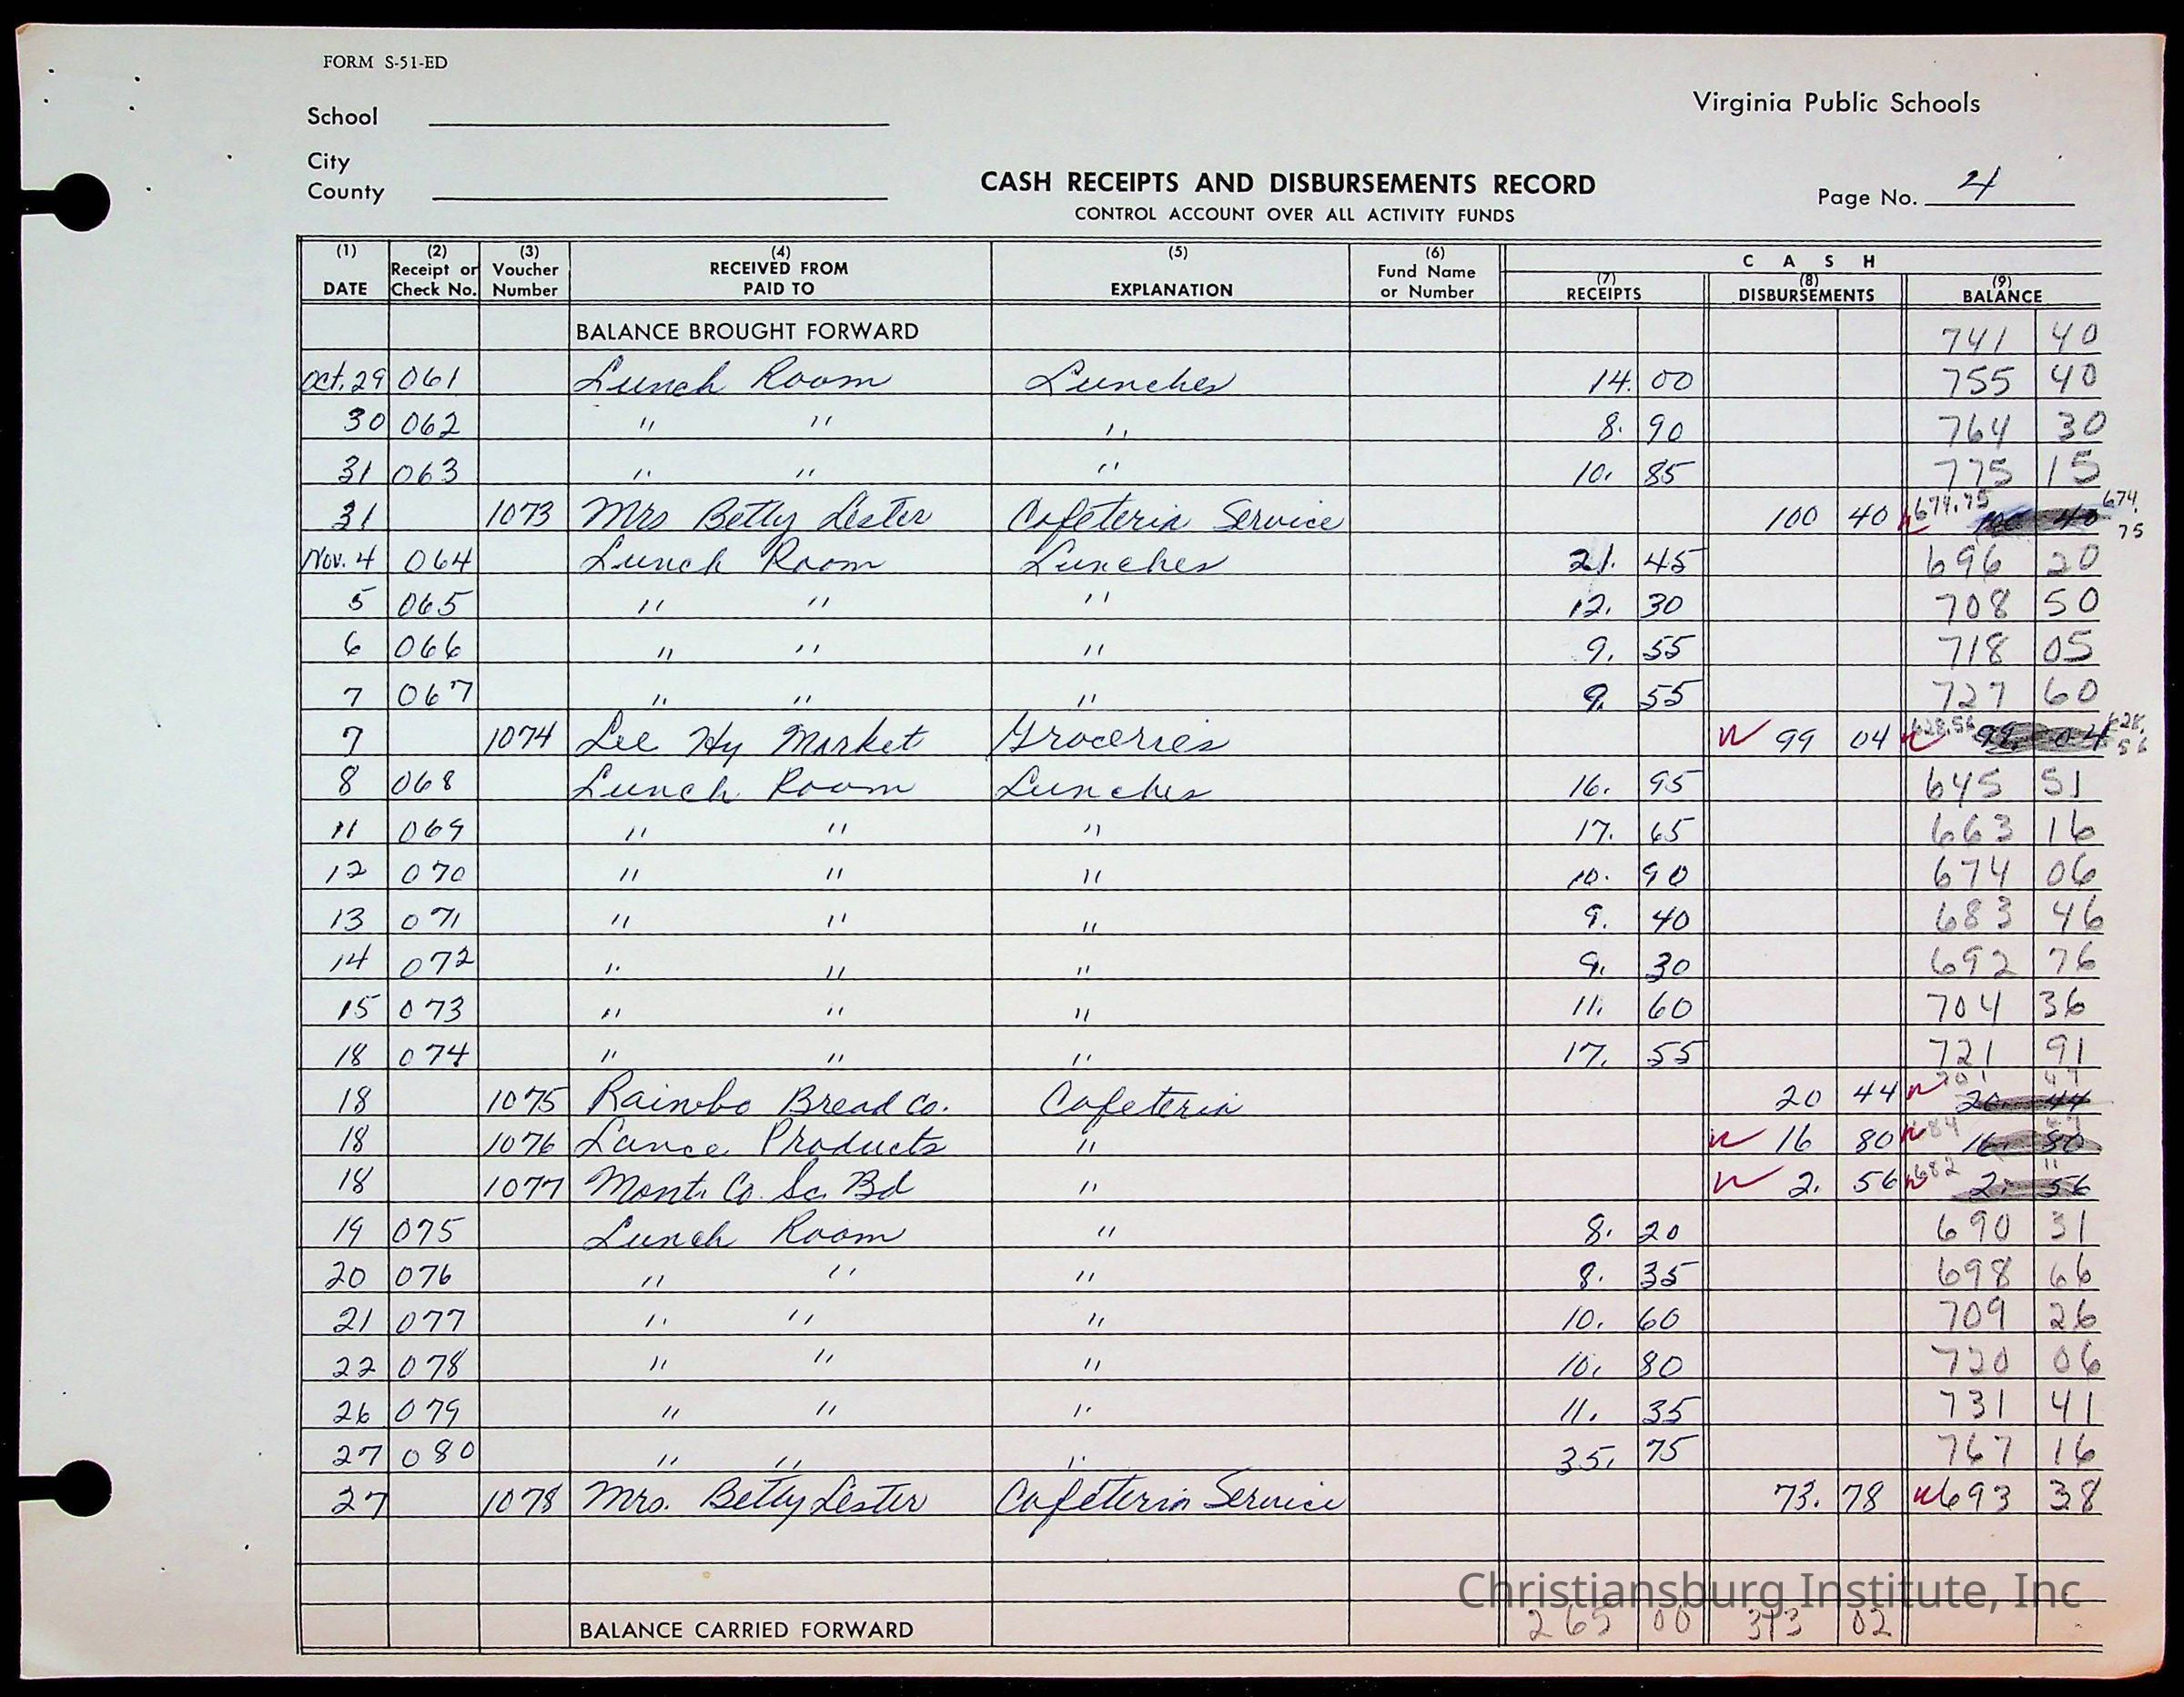 FORM S-51-ED
Virginia Public Schools
School
City
County
CASH RECEIPTS AND DISBURSEMENTS RECORD
CONTROL ACCOUNT OVER ALL ACTIVITY FUNDS
Page No. 4
(1) DATE (2) Receipt or Check No. (3) Voucher Number (4) RECEIVED FROM PAID TO (5) EXPLANATION (6) Fund Name or Number CASH (7) RECEIPTS (8) DISBURSEMENTS (9) BALANCE
BALANCE BROUGHT FORWARD 741 40
Oct. 29 061 Lunch Room Lunches 14. 00 755 40
30 062 " " " 8. 90 764 30
31 063 " " " 10. 85 775 15
31 1073 Mrs Betty Lester Cafeteria Service 100 40 674.75 100 40 674.75
Nov. 4 064 Lunch Room Lunches 21. 45 696 20
5 065 " " " 12. 30 708 50
6 066 " " " 9. 55 718 05
7 067 " " " 9. 55 727 60
7 1074 Lee Hy Market Groceries 99 04 628.56 99. 04 628.56
8 068 Lunch Room Lunches 16. 95 645 51
11 069 " " " 17. 65 663 16
12 070 " " " 10. 90 674 06
13 071 " " " 9. 40 683 46
14 072 " " " 9. 30 692 76
15 073 " " " 11. 60 704 36
18 074 " " " 17. 55 721 91
18 1075 Rainbo Bread Co. Cafeteria 20 44 701 47 20. 44
18 1076 Lance Products " 16 80 684 16. 80
18 1077 Mont. Co. Sc. Bd " 2. 56 682 11 2. 56
19 075 Lunch Room " 8. 20 690 31
20 076 " " " 8. 35 698 66
21 077 " " " 10. 60 709 26
22 078 " " " 10. 80 720 06
26 079 " " " 11. 35 731 41
27 080 " " " 35. 75 767 16
27 1078 Mrs. Betty Lester Cafeteria Service 73. 78 693 38
Christiansburg Institute, Inc
BALANCE CARRIED FORWARD 265 00 313 02